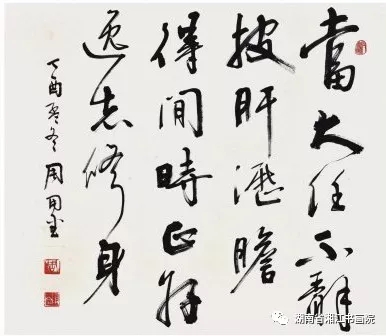 當大任不辭
披肝瀝膽
得間時正好
逸志修身
丁酉冬周用金
湖南省湘江书画院